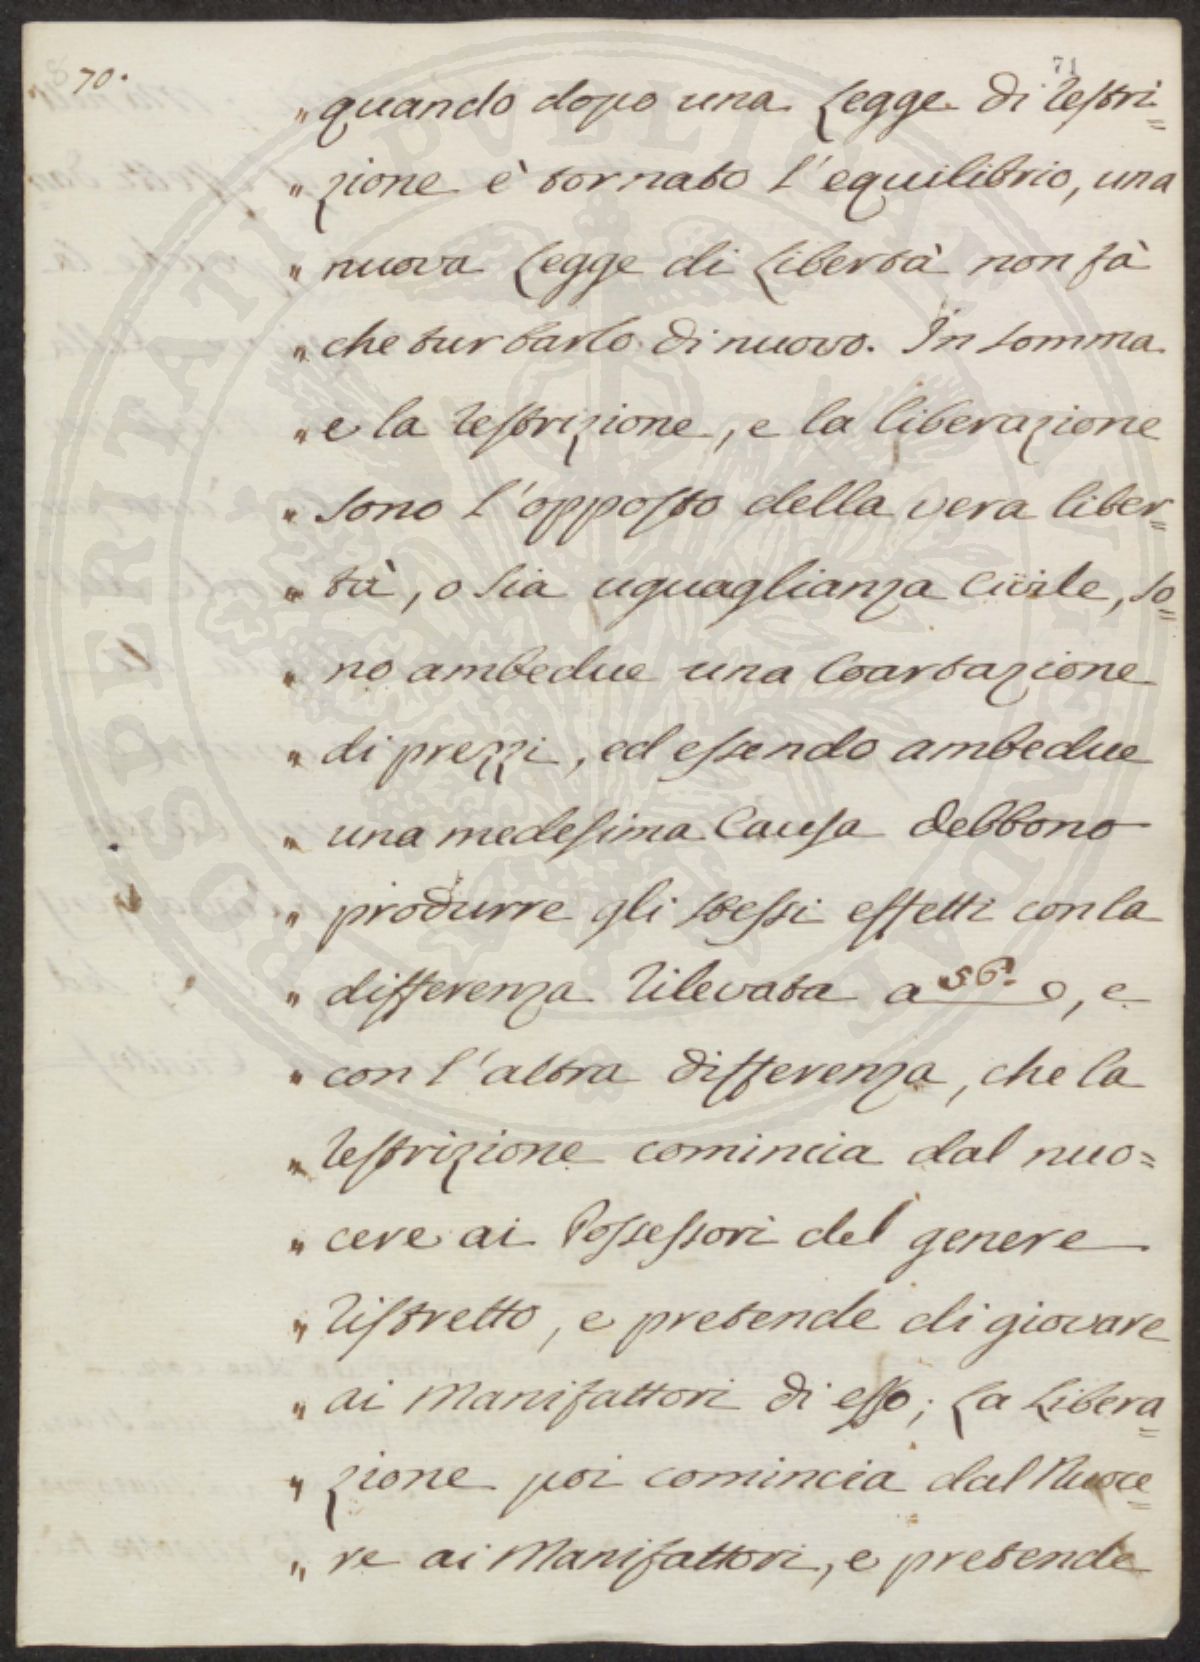 70.
71
„ quando dopo una Legge di restri=
„ zione è tornato l'equilibrio, una
„ nuova Legge di Libertà non fà
„ che turbarlo di nuovo. In somma
„ e la restrizione, e la liberazione
„ sono l'opposto della vera liber=
„ tà, o sia uguaglianza Civile, so=
„ no ambedue una Coartazione
„ di prezzi, ed essendo ambedue
„ una medesima Causa debbono
„ produrre gli stessi effetti con la
„ differenza rilevata a 56. e
„ con l'altra differenza, che la
„ restrizione comincia dal nuo=
„ cere ai Possessori del genere
„ ristretto, e pretende di giovare
„ ai Manifattori di esso; La Libera=
„ zione poi comincia dal Nuoce=
„ re ai Manifattori, e pretende
PROSPERITATI PUBLICAE AUGENDAE